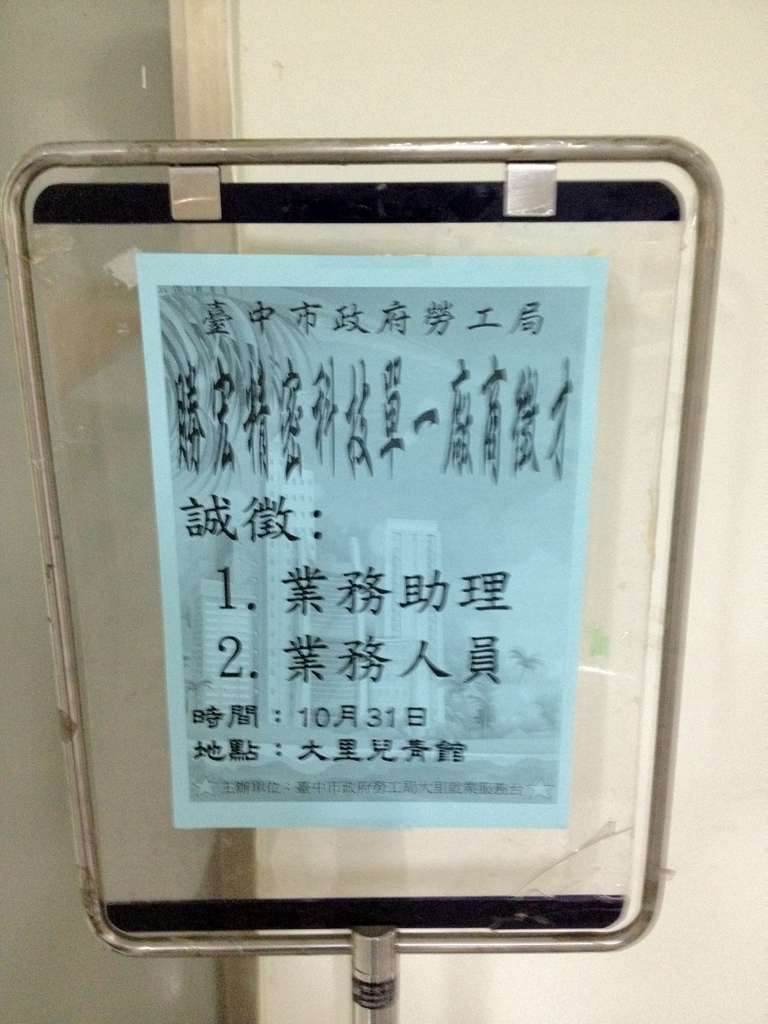 臺中市政府勞工局
勝宏精密科技單一廠商徵才
誠徵：
1. 業務助理
2. 業務人員
時間：10月31日
地點：大里兒青館
☆主辦單位：臺中市政府勞工局大里就業服務台☆